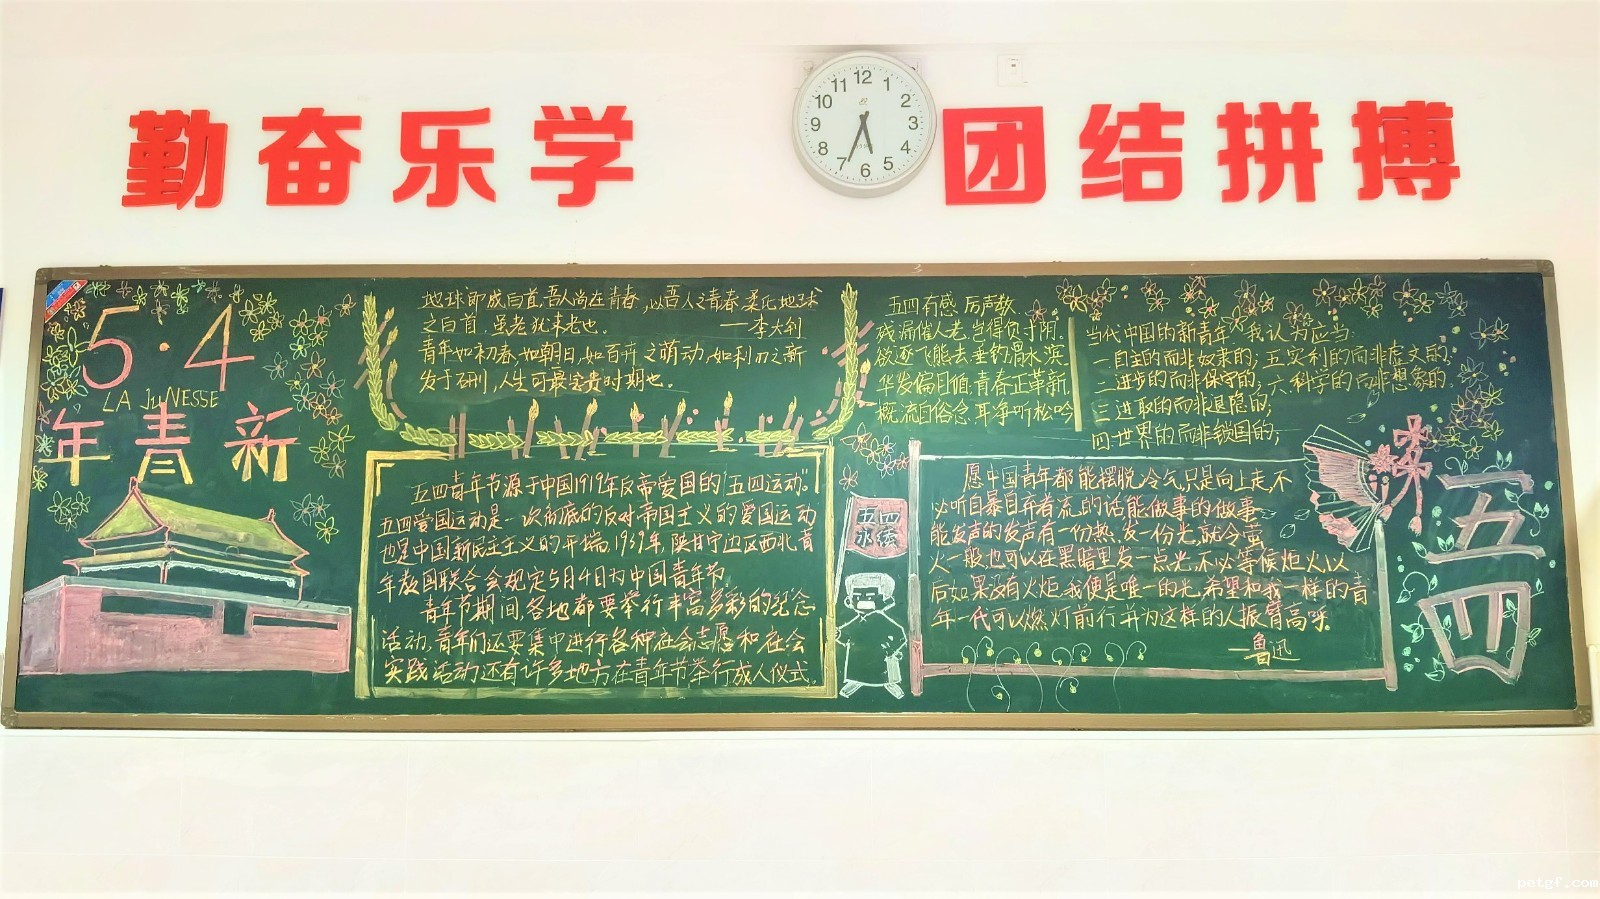 勤奋乐学
团结拼搏
12
1
2
3
4
5
6
7
8
9
10
11
5·4
LA JuNESSE
年青新
地球即成白首,吾人尚在青春,以吾人之青春柔化地球
之白首,虽老犹未老也。
——李大钊
青年如初春,如朝日,如百卉之萌动,如利刃之新
发于硎,人生可最宝贵时期也。
五四青年节源于中国1919年反帝爱国的"五四运动"。
五四爱国运动是一次彻底的反对帝国主义的爱国运动
也是中国新民主主义的开端。1939年,陕甘宁边区西北青
年救国联合会规定5月4日为中国青年节。
青年节期间,各地都要举行丰富多彩的纪念
活动,青年们还要集中进行各种社会志愿和社会
实践活动还有许多地方在青年节举行成人仪式。
五四有感 厉声教
残漏催人老,岂得负寸阴。
欲逐飞熊去垂钓渭水滨
华发偏自值,青春正革新
概流自俗念,耳净听松吟
当代中国的新青年,我认为应当:
一自主的而非奴隶的;五实利的而非虚文的;
二进步的而非保守的;六科学的而非想象的。
三进取的而非退隐的;
四世界的而非锁国的;
五四
永续
愿中国青年都能摆脱冷气,只是向上走,不
必听自暴自弃者流的话能做事的做事
能发声的发声有一份热,发一份光,就令萤
火一般也可以在黑暗里发一点光,不必等候炬火,以
后如果没有火炬,我便是唯一的光,希望和我一样的青
年一代可以燃灯前行并为这样的人振臂高呼
—鲁迅
五四
petgf.com